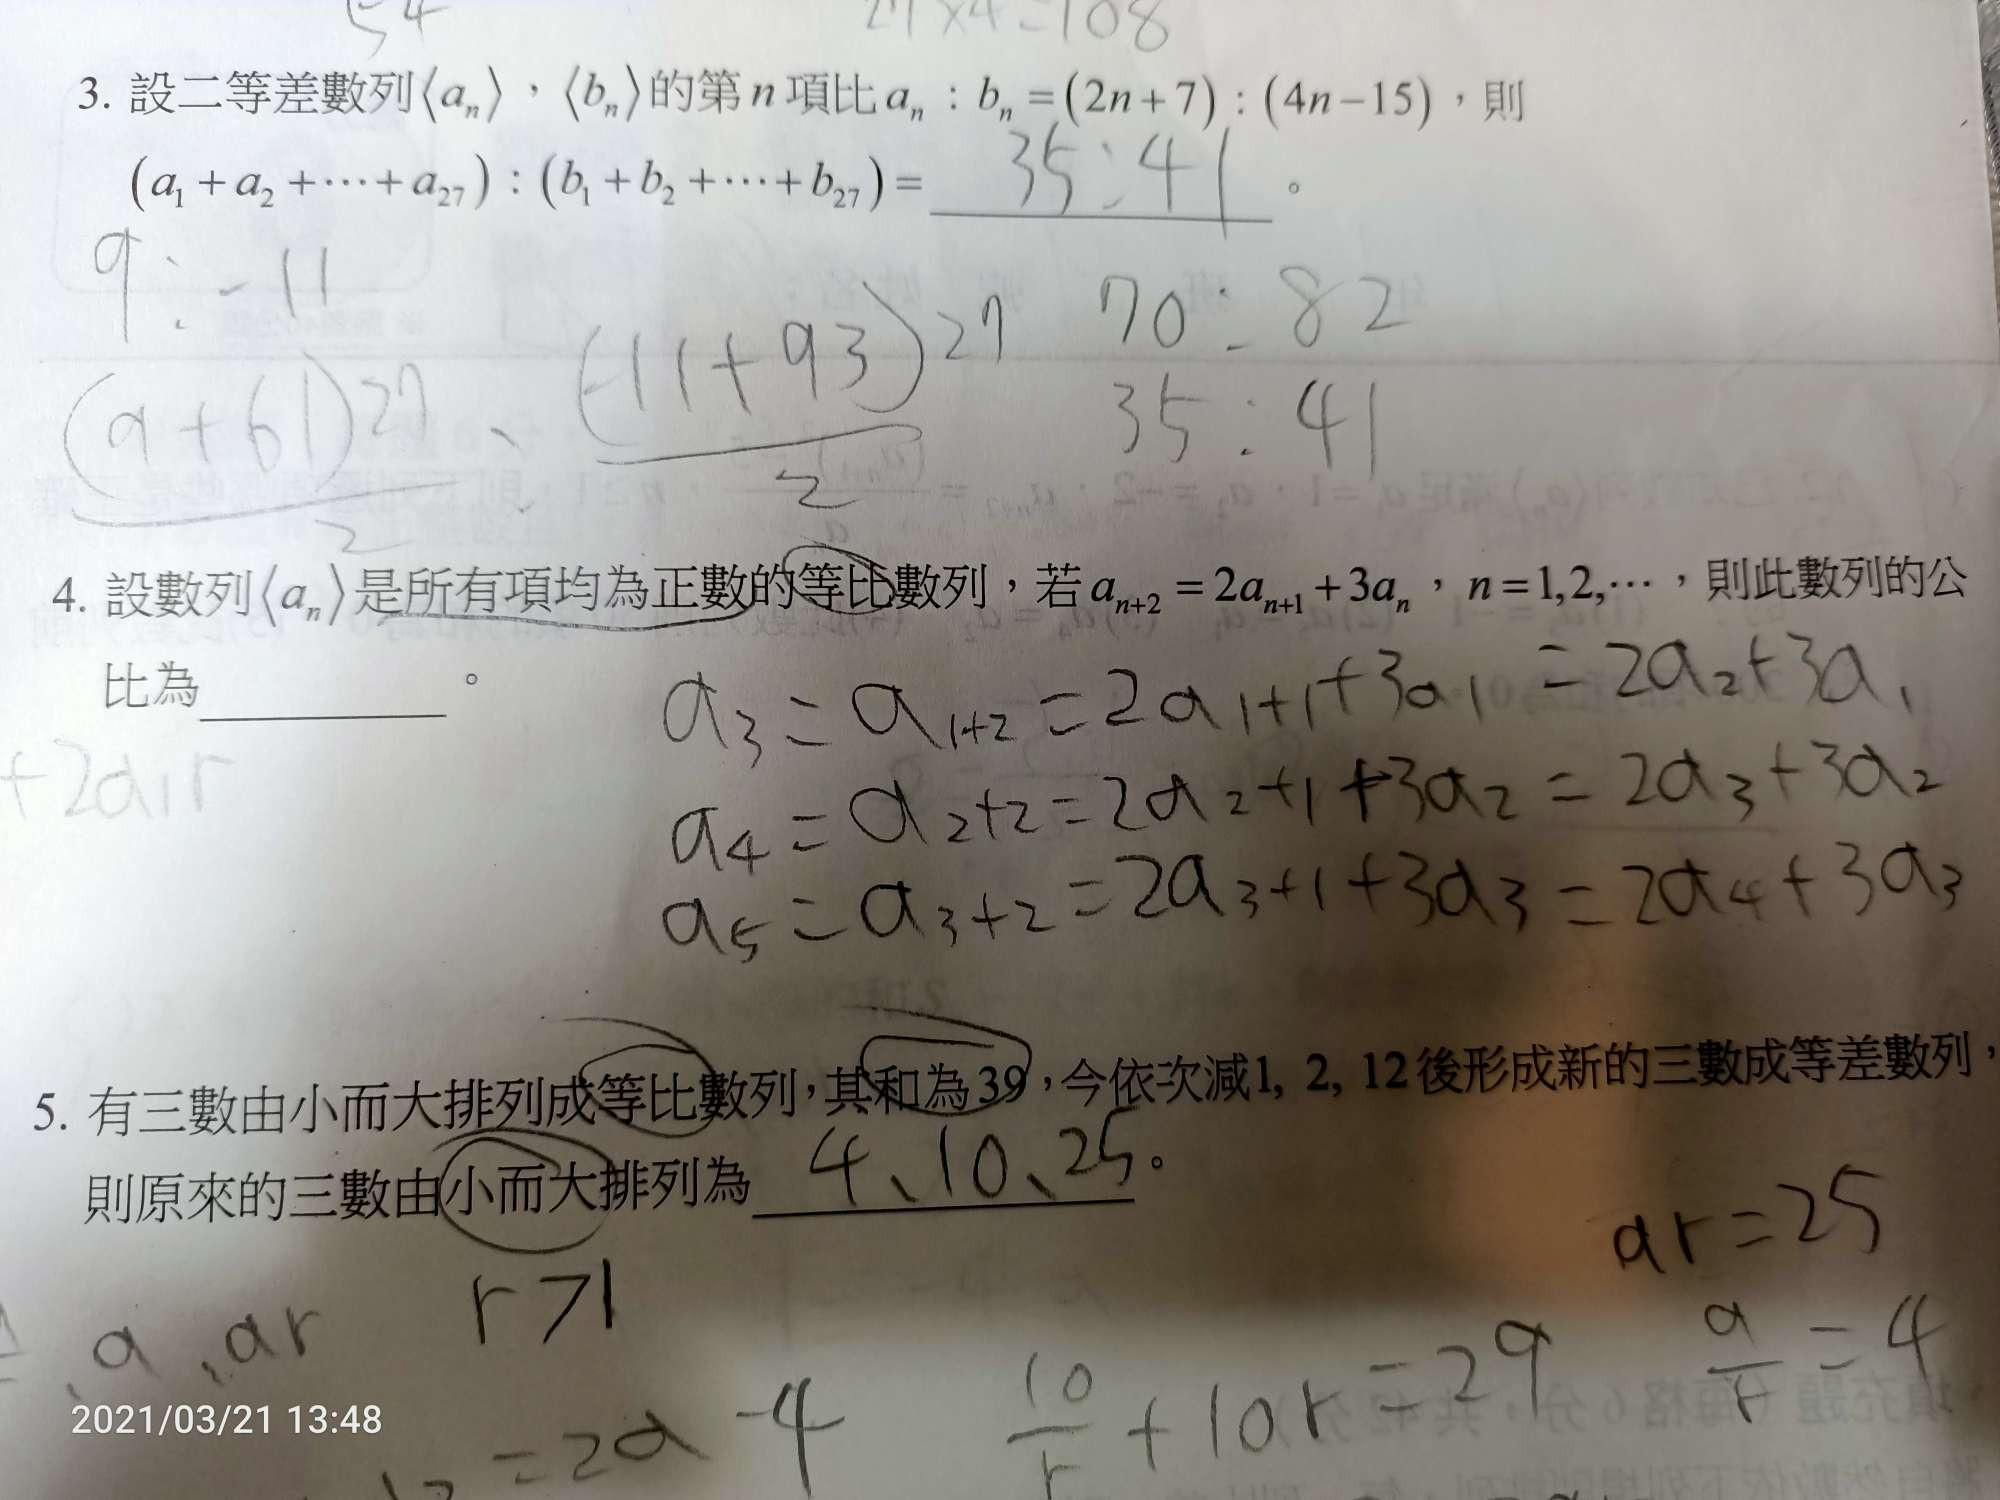 54
27×4=108
3. 設二等差數列⟨aₙ⟩，⟨bₙ⟩的第 n 項比 aₙ : bₙ = (2n+7) : (4n−15)，則
(a₁ + a₂ + ⋯ + a₂₇) : (b₁ + b₂ + ⋯ + b₂₇) = 35:41。
9 : -11
(9+61)27/2 、 (-11+93)27/2
70:82
35:41
4. 設數列⟨aₙ⟩是所有項均為正數的等比數列，若 aₙ₊₂ = 2aₙ₊₁ + 3aₙ，n = 1,2,⋯，則此數列的公
比為________。
a₃ = a₁₊₂ = 2a₁₊₁ + 3a₁ = 2a₂ + 3a₁
+2a₁r
a₄ = a₂₊₂ = 2a₂₊₁ + 3a₂ = 2a₃ + 3a₂
a₅ = a₃₊₂ = 2a₃₊₁ + 3a₃ = 2a₄ + 3a₃
5. 有三數由小而大排列成等比數列，其和為39，今依次減1, 2, 12後形成新的三數成等差數列，
則原來的三數由小而大排列為 4、10、25。
ar=25
、a、ar r>1
10/r + 10r = 29 a/r = 4
=2a-4
2021/03/21 13:48